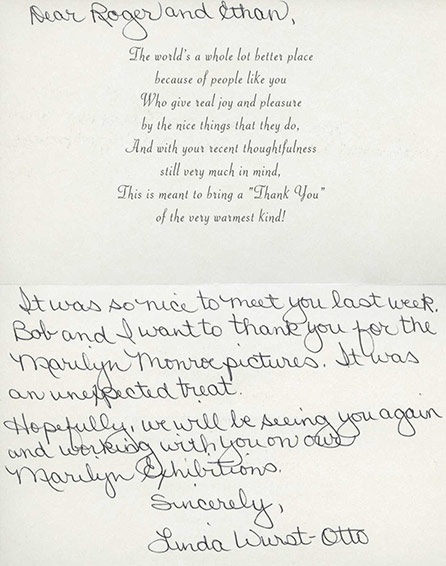 Dear Roger and Ethan,
The world's a whole lot better place
because of people like you
Who give real joy and pleasure
by the nice things that they do,
And with your recent thoughtfulness
still very much in mind,
This is meant to bring a "Thank You"
of the very warmest kind!
It was so nice to meet you last week.
Bob and I want to thank you for the
Marilyn Monroe pictures. It was
an unexpected treat.
Hopefully, we will be seeing you again
and working with you on our
Marilyn Exhibitions.
Sincerely,
Linda Wurst-Otto